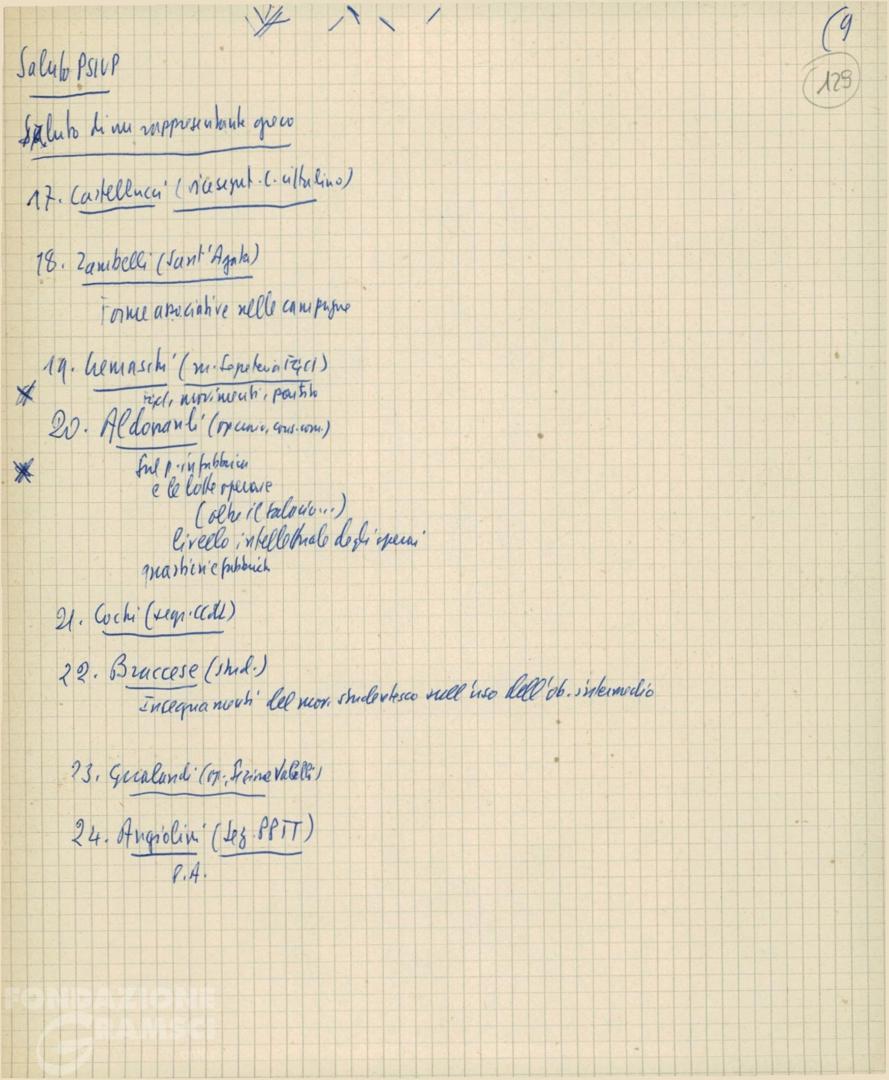 (9
129
Saluto PSIUP
Saluto di un rappresentante greco
17. Castellucci (vicesegret. C. cittadino)
18. Zambelli (Sant'Agata)
Forme associative nelle campagne
19. (m. Segreteria FGCI)
FGCI, movimenti, partito
20. Aldovandi (operaio, cons. com.)
Sul p. in fabbrica
e le lotte operaie
(oltre il salario...)
livello intellettuale degli operai
quartieri e fabbrica
21. Cochi (segr. CCdL)
22. Braccese (stud.)
Insegnamenti del mov. studentesco sull'uso dell'ob. intermedio
23. Gualandi (op., Sezione)
24. Angiolini (Sez. PPTT)
P.A.
FONDAZIONE
GRAMSCI